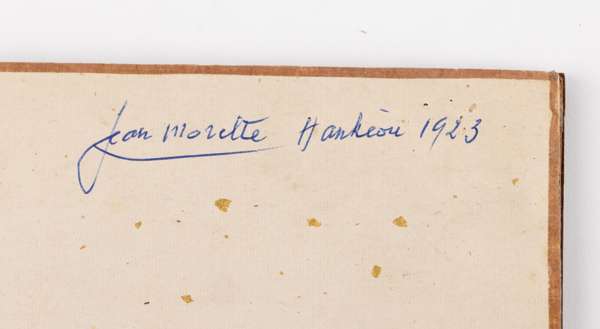 Jean Morette Hankéou 1923